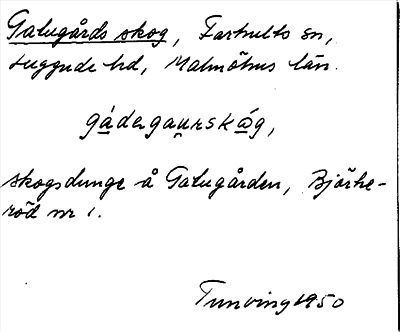 Gatugårds skog, Farhults sn,
Luggude hd, Malmöhus län.
gádegaurskåg,
skogsdunge å Gatugården, Björke-
röd nr 1.
Tunving 1950